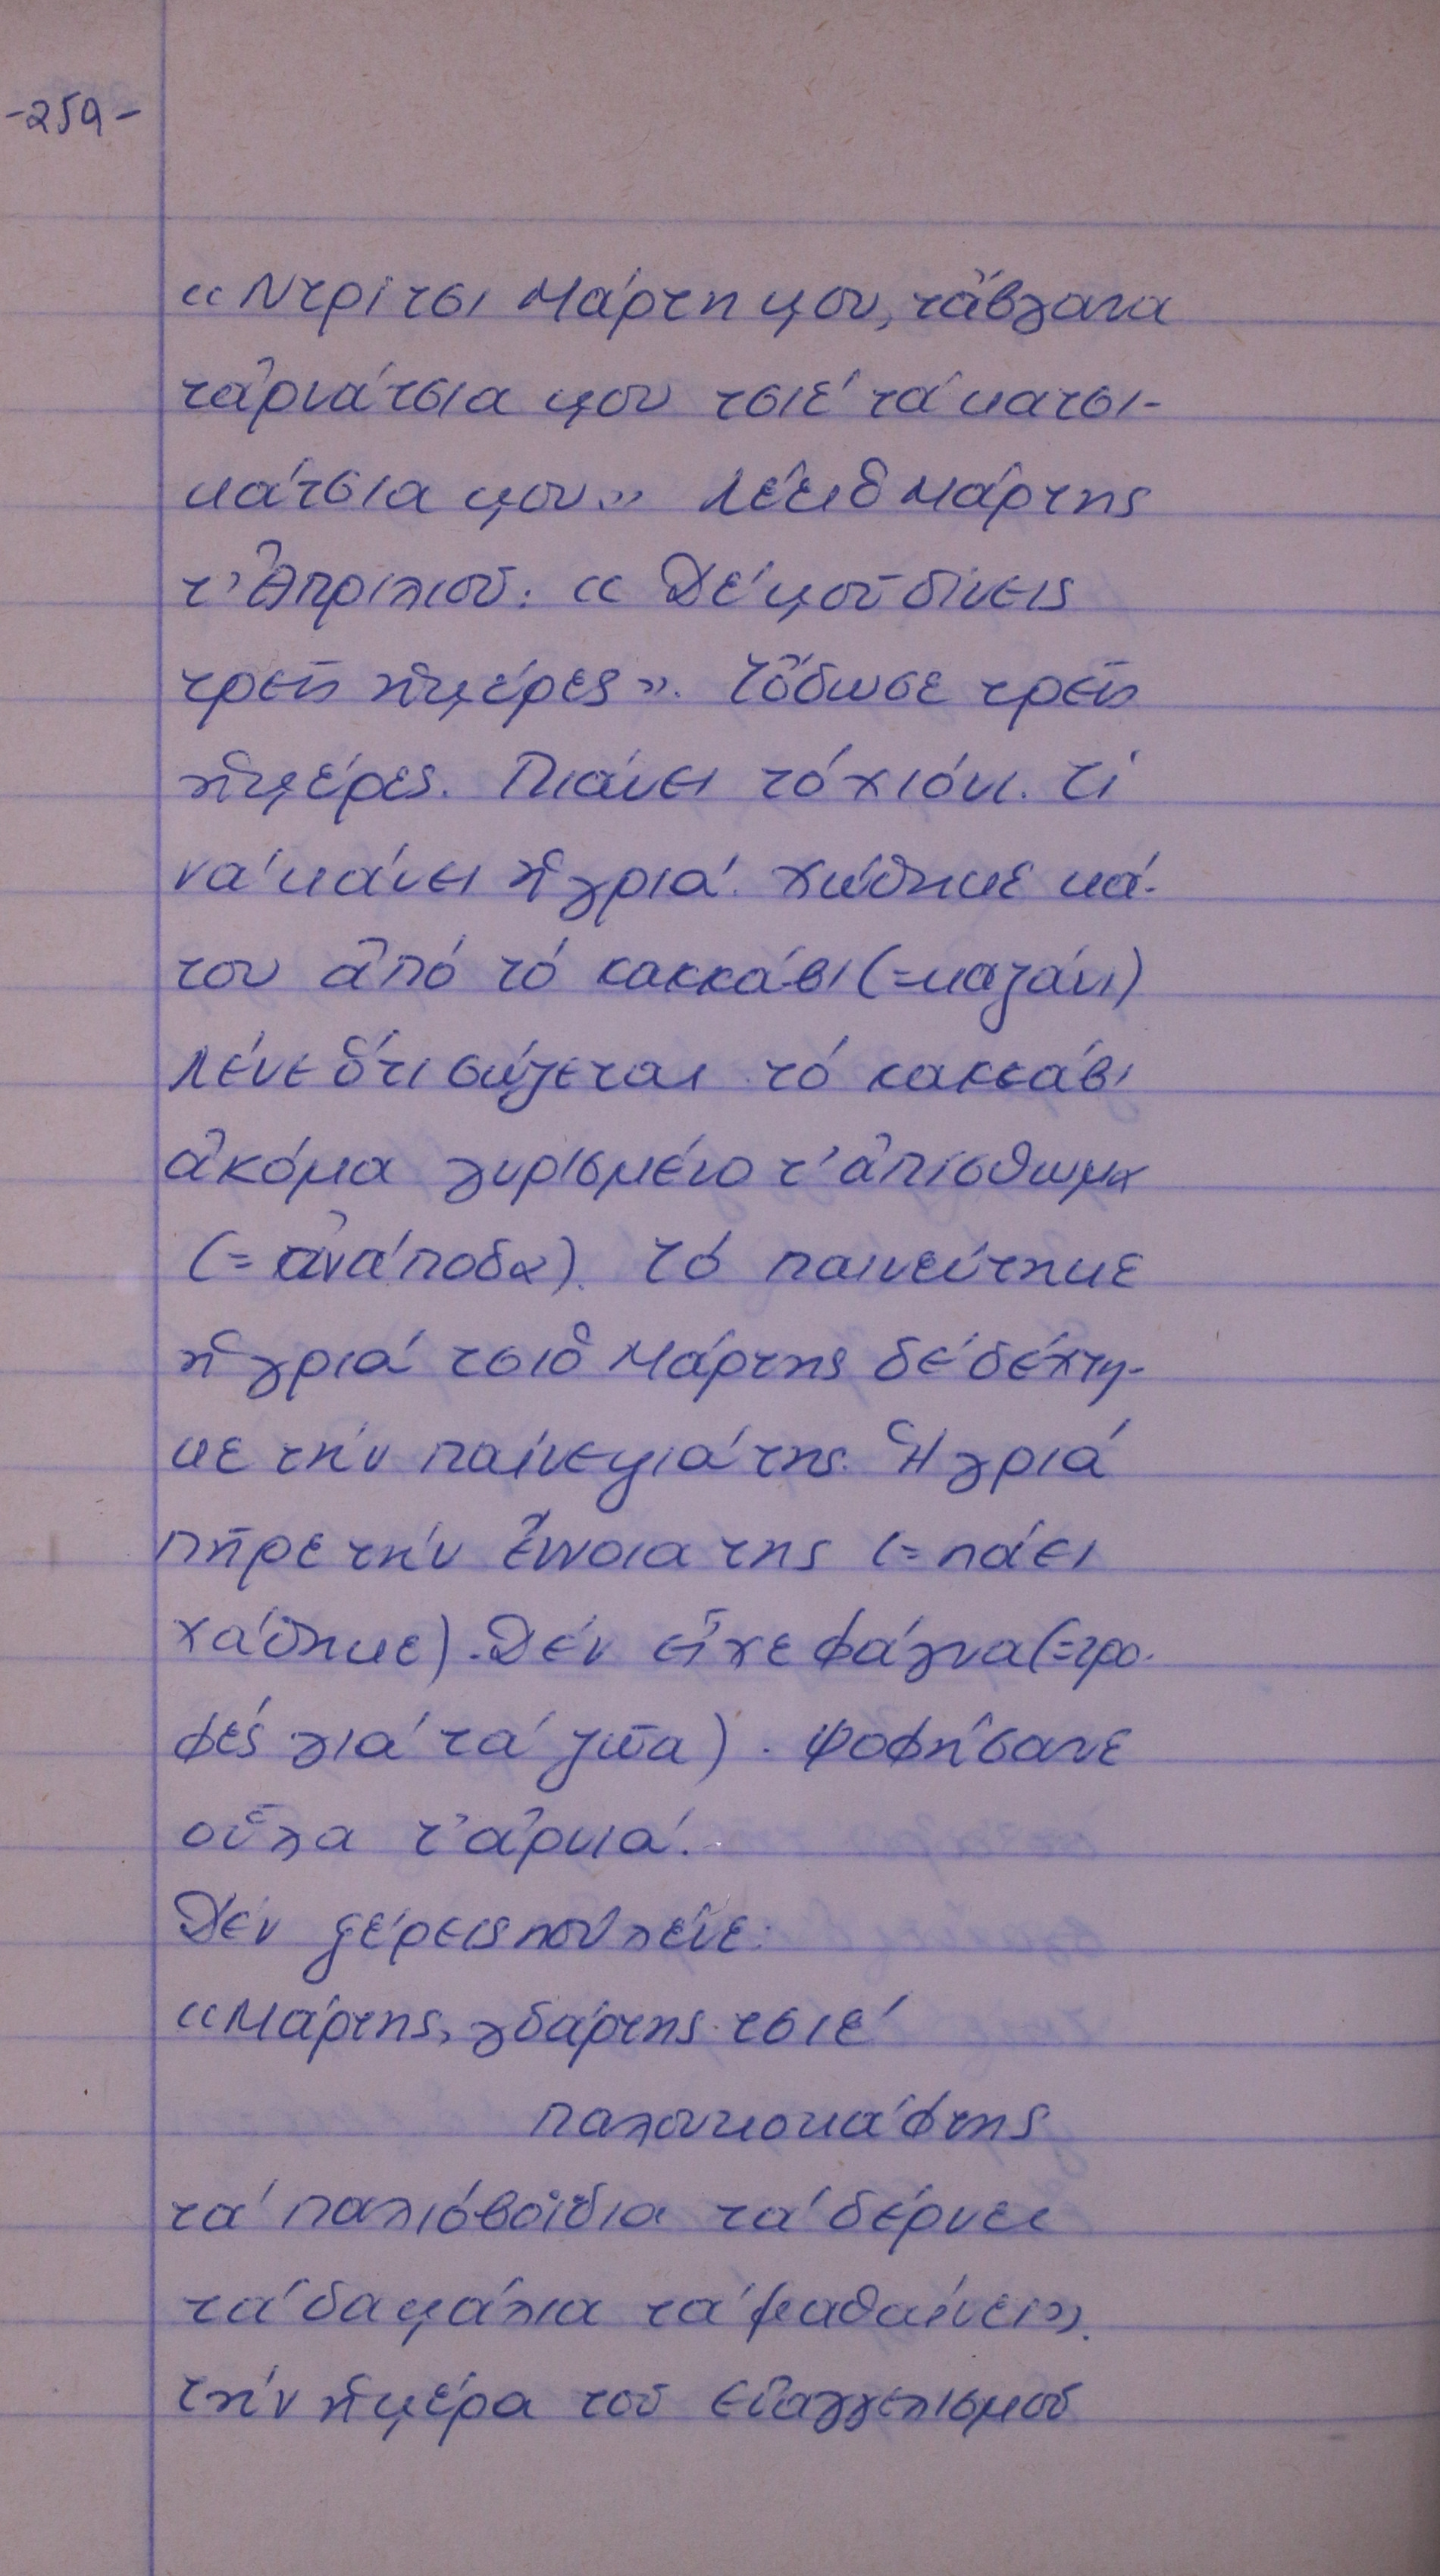 -259-
«Ντρίτσι Μάρτη μου, τἄβγανα
τἀρνάτσια μου τσιέ τά κατσι-
κάτσια μου» Λέει ὁ Μάρτης
τ' Ἀπριλιοῦ: «Δέ μοῦ δίνεις
τρεῖς ἡμέρες». Τὄδωσε τρεῖς
ἡμέρες. Πιάνει τό χιόνι. Τί
νά κάνει ἡ γριά. Χώθηκε κά-
του ἀπό τό κακκάβι (=καζάνι)
Λένε ὅτι σώζεται τό κακκάβι
ἀκόμα γυρισμένο τ' ἀπίσθωμα
(=ἀνάποδα). Τό παινεύτηκε
ἡ γριά τσι ὁ Μάρτης δέ δέχτη-
κε τήν παίνεμιά της. Ἡ γριά
πῆρε τήν ἔννοια της (=πάει
χάθηκε). Δέν εἶχε φάγνα (=τρο-
φές γιά τά ζῶα). Ψοφήσανε
οὗλα τ' ἀρνιά.
Δέν ξέρεις πού λένε:
«Μάρτης, γδάρτης τσιέ
παλουκοκάφτης
τά παλιόβοϊδια τά δέρνει
τά δαμάλια τά μαθαίνει».
Τήν ἡμέρα τοῦ Εὐαγγελισμοῦ